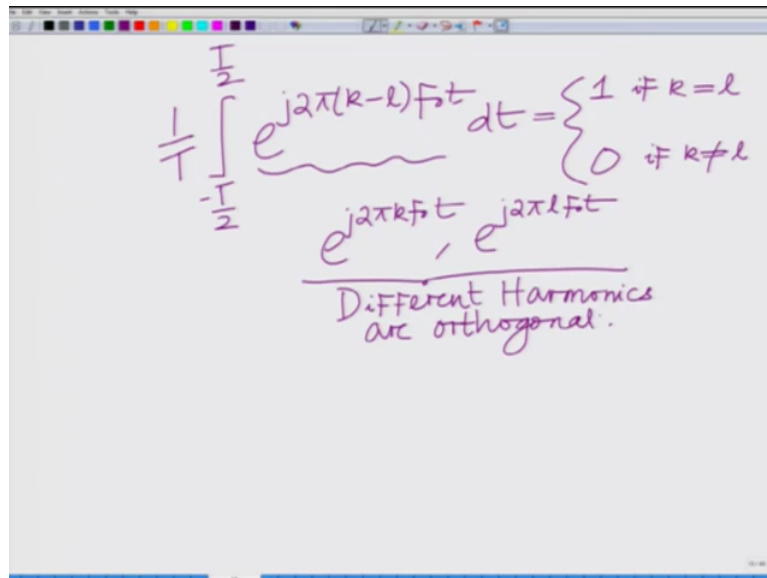 1/T ∫_{-T/2}^{T/2} e^{j2π(k-l)F₀t} dt = { 1 if k = l
0 if k ≠ l
e^{j2πkF₀t} , e^{j2πlF₀t}
Different Harmonics
are orthogonal.